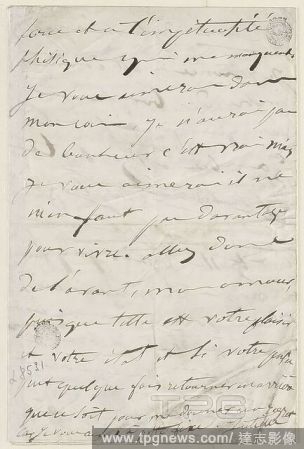 force et à l'impétuosité
phisique qui me manquent
je vous aimerai dans
mon coin. je n'aurai pas
de bonheur c'est vrai mais
je vous aimerai il ne
m'en faut pas davantage
pour vivre. allez donc
de l'avant, mon amour
puisque telle est votre plaisir
et votre état et si votre
fait quelque fois retourner en arrière
que ce soit pour me donner un
28531
TPG
www.tpgnews.com / 達志影像